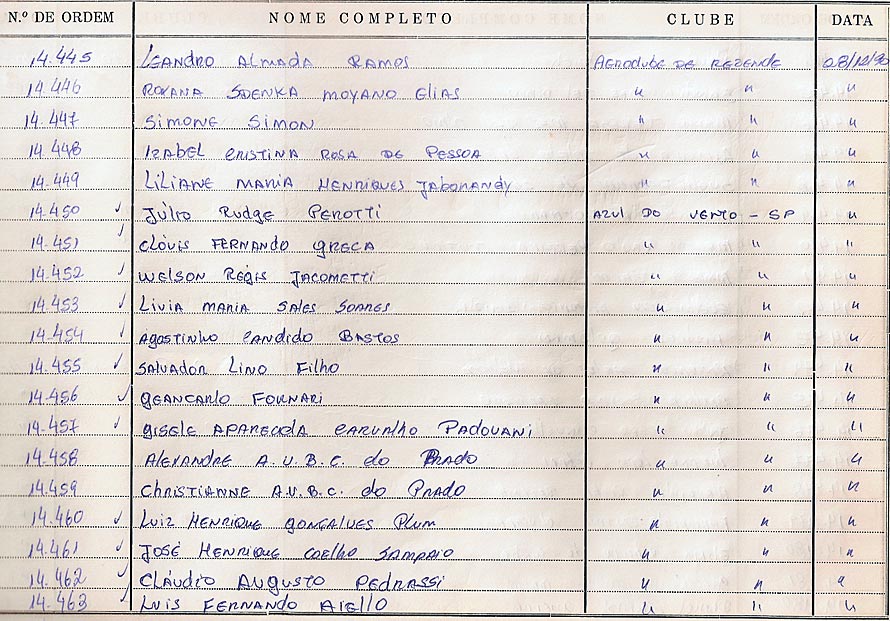 N.º DE ORDEM NOME COMPLETO CLUBE DATA
14.445 LEANDRO ALMADA RAMOS AERODUBE DE REZENDE 08/12/90
14.446 ROXANA SDENKA MOYANO ELIAS " " "
14.447 SIMONE SIMON " " "
14.448 IZABEL CRISTINA ROSA DE PESSOA " " "
14.449 LILIANE MARIA HENRIQUES JABORANDY " " "
14.450 ✓ JÚLIO RUDGE PEROTTI AZUL DO VENTO - SP "
14.451 ✓ CLÓVIS FERNANDO GRECA " " "
14.452 ✓ WELSON RÉGIS JACOMETTI " " "
14.453 ✓ LIVIA MARIA SALES SOARES " " "
14.454 ✓ AGOSTINHO CANDIDO BASTOS " " "
14.455 ✓ SALVADOR LINO FILHO " " "
14.456 ✓ GEANCARLO FORNARI " " "
14.457 ✓ GISELE APARECIDA CARVALHO PADOVANI " " "
14.458 ALEXANDRE A.V.B.C. do PRADO " " "
14.459 CHRISTIANNE A.V.B.C. do PRADO " " "
14.460 ✓ LUIZ HENRIQUE GONÇALVES PLUM " " "
14.461 ✓ JOSÉ HENRIQUE COELHO SAMPAIO " " "
14.462 ✓ CLÁUDIO AUGUSTO PEDRASSI " " "
14.463 ✓ LUIS FERNANDO AIELLO " " "